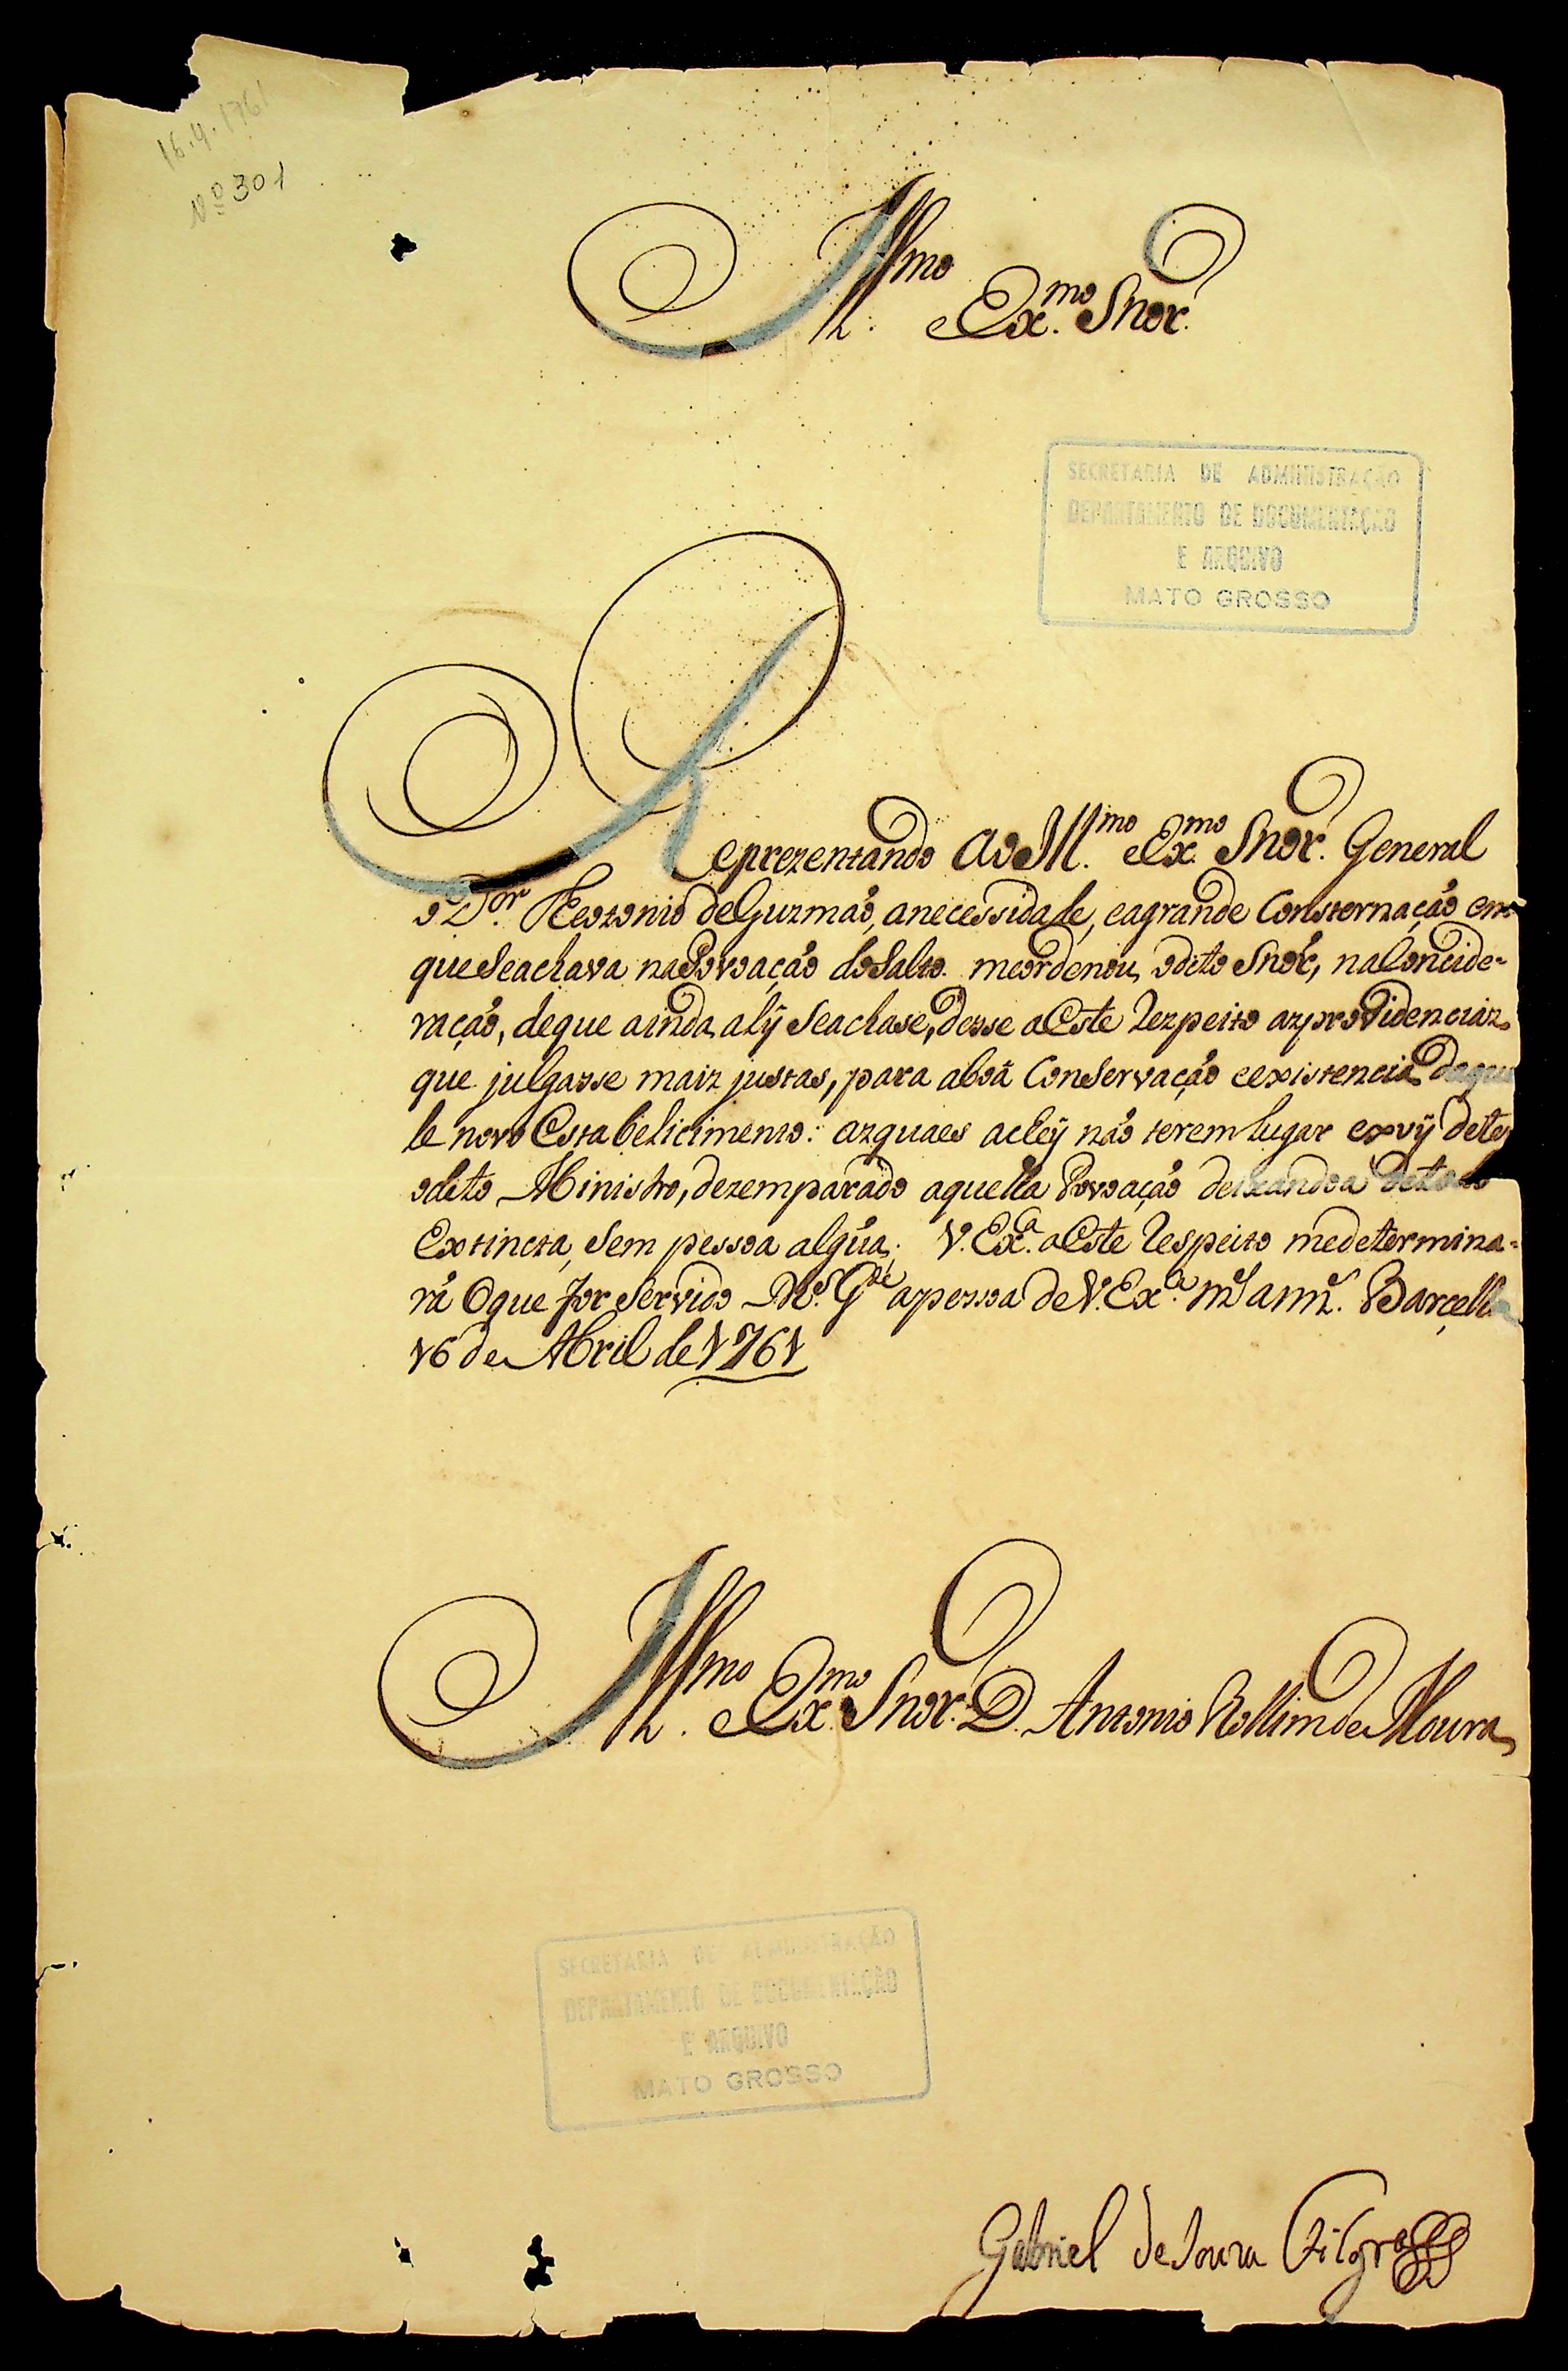 16.4.1761
Nº 301
Ill.mo e Ex.mo Snor.
SECRETARIA DE ADMINISTRAÇÃO
DEPARTAMENTO DE DOCUMENTAÇÃO
E ARQUIVO
MATO GROSSO
Reprezentando ao Ill.mo e Ex.mo Snor. General
o D.or Theotonio de Guzmaõ, a necessidade, e a grande Consternaçaõ em
que Se achava na Povoaçaõ do Salto. me ordenou, o dito Snor, na Concide-
raçaõ, de que ainda aly Se achase, desse a Este Rezpeito az providenciaz
que julgasse maiz justas, para a boã Conservaçaõ e existencia daque
le novo Estabelicimento: az quaes achey naõ terem lugar
o dito Ministro, dezemparado aquella Povoaçaõ deixando a de todo
Extincta, Sem pessoa algũa. V. Ex.ª a Este Respeito me determina-
rá O que for Servido D.s G.de a pessoa de V. Ex.ª m.s ann.s Barcell
16 de Abril de 1761
Ill.mo e Ex.mo Snor. D. Antonio Rollim de Moura
SECRETARIA DE ADMINISTRAÇÃO
DEPARTAMENTO DE DOCUMENTAÇÃO
E ARQUIVO
MATO GROSSO
Gabriel de Souza Filgr.as